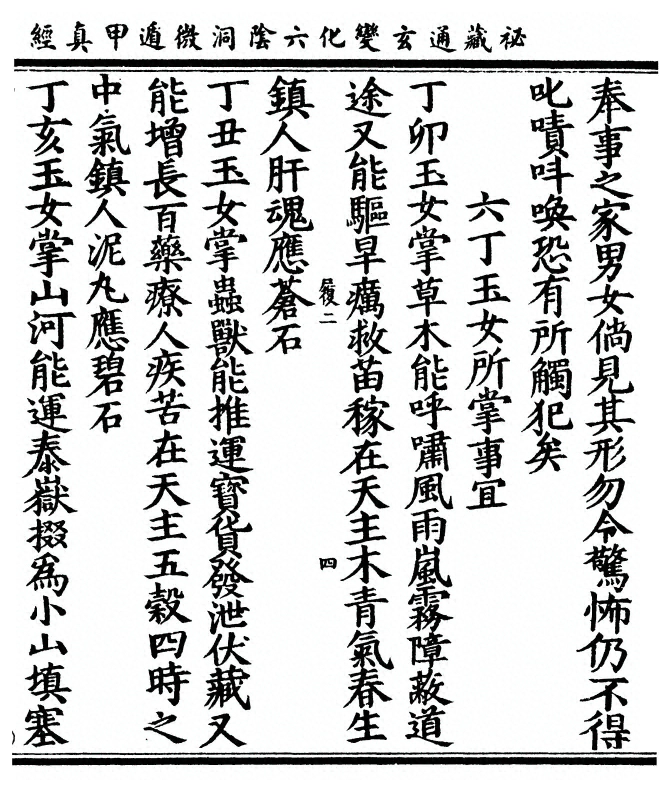 祕藏通玄變化六陰洞微遁甲真經
奉事之家男女倘見其形勿令驚怖仍不得
叱嘖呌喚恐有所觸犯矣
六丁玉女所掌事宜
丁卯玉女掌草木能呼嘯風雨嵐霧障蔽道
途又能驅旱癘救苗稼在天主木青氣春生
履二
四
鎮人肝魂應蒼石
丁丑玉女掌蟲獸能推運寶貨發泄伏藏又
能增長百藥療人疾苦在天主五穀四時之
中氣鎮人泥丸應碧石
丁亥玉女掌山河能運泰嶽掇為小山填塞